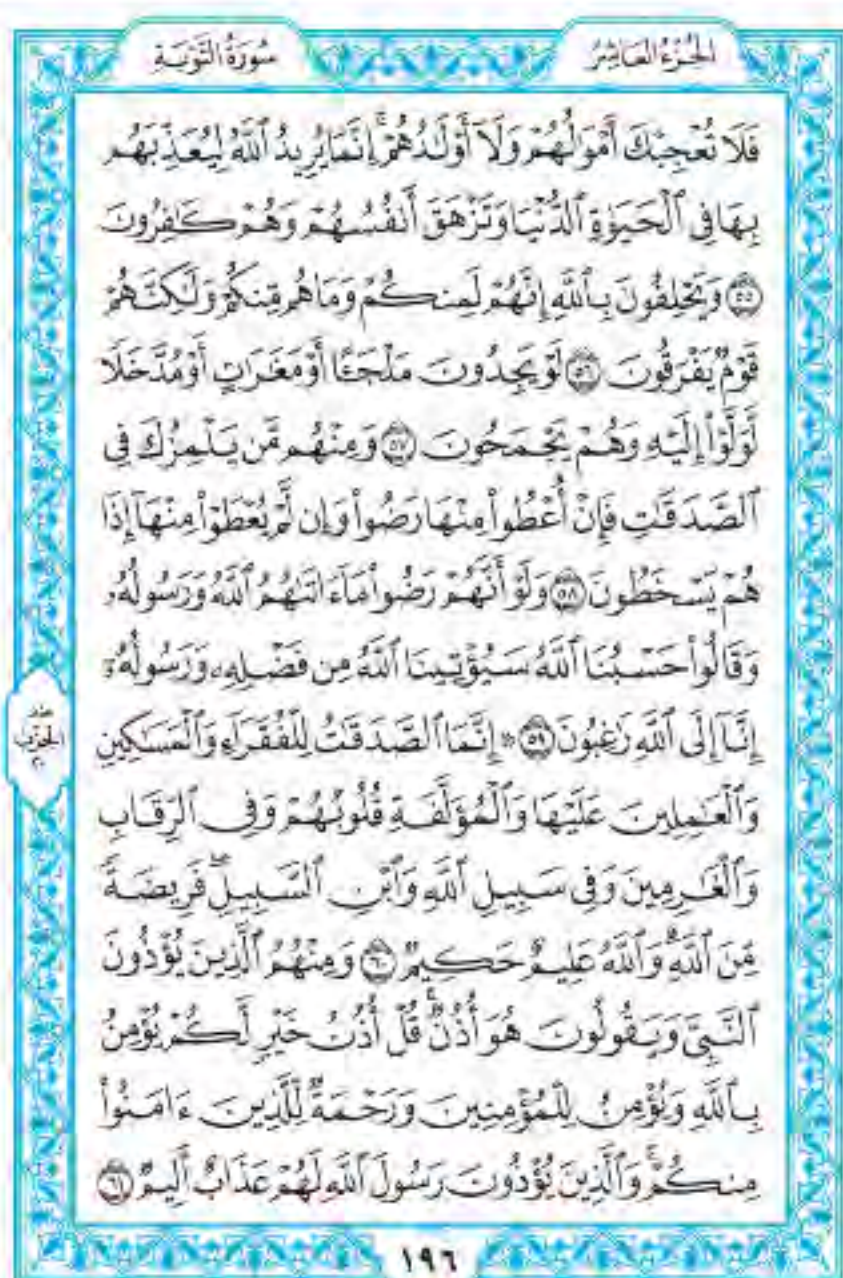 الجزء العاشر
سورة التوبة
فَلَا تُعْجِبْكَ أَمْوَٰلُهُمْ وَلَآ أَوْلَٰدُهُمْ ۚ إِنَّمَا يُرِيدُ ٱللَّهُ لِيُعَذِّبَهُم
بِهَا فِى ٱلْحَيَوٰةِ ٱلدُّنْيَا وَتَزْهَقَ أَنفُسُهُمْ وَهُمْ كَٰفِرُونَ
٥٥ وَيَحْلِفُونَ بِٱللَّهِ إِنَّهُمْ لَمِنكُمْ وَمَا هُم مِّنكُمْ وَلَٰكِنَّهُمْ
قَوْمٌ يَفْرَقُونَ ٥٦ لَوْ يَجِدُونَ مَلْجَـًٔا أَوْ مَغَٰرَٰتٍ أَوْ مُدَّخَلًا
لَّوَلَّوْا۟ إِلَيْهِ وَهُمْ يَجْمَحُونَ ٥٧ وَمِنْهُم مَّن يَلْمِزُكَ فِى
ٱلصَّدَقَٰتِ فَإِنْ أُعْطُوا۟ مِنْهَا رَضُوا۟ وَإِن لَّمْ يُعْطَوْا۟ مِنْهَآ إِذَا
هُمْ يَسْخَطُونَ ٥٨ وَلَوْ أَنَّهُمْ رَضُوا۟ مَآ ءَاتَىٰهُمُ ٱللَّهُ وَرَسُولُهُۥ
وَقَالُوا۟ حَسْبُنَا ٱللَّهُ سَيُؤْتِينَا ٱللَّهُ مِن فَضْلِهِۦ وَرَسُولُهُۥٓ
إِنَّآ إِلَى ٱللَّهِ رَٰغِبُونَ ٥٩ ۞ إِنَّمَا ٱلصَّدَقَٰتُ لِلْفُقَرَآءِ وَٱلْمَسَٰكِينِ
وَٱلْعَٰمِلِينَ عَلَيْهَا وَٱلْمُؤَلَّفَةِ قُلُوبُهُمْ وَفِى ٱلرِّقَابِ
وَٱلْغَٰرِمِينَ وَفِى سَبِيلِ ٱللَّهِ وَٱبْنِ ٱلسَّبِيلِ ۖ فَرِيضَةً
مِّنَ ٱللَّهِ ۗ وَٱللَّهُ عَلِيمٌ حَكِيمٌ ٦٠ وَمِنْهُمُ ٱلَّذِينَ يُؤْذُونَ
ٱلنَّبِىَّ وَيَقُولُونَ هُوَ أُذُنٌ ۚ قُلْ أُذُنُ خَيْرٍ لَّكُمْ يُؤْمِنُ
بِٱللَّهِ وَيُؤْمِنُ لِلْمُؤْمِنِينَ وَرَحْمَةٌ لِّلَّذِينَ ءَامَنُوا۟
مِنكُمْ ۚ وَٱلَّذِينَ يُؤْذُونَ رَسُولَ ٱللَّهِ لَهُمْ عَذَابٌ أَلِيمٌ ٦١
الحزب
١٩٦